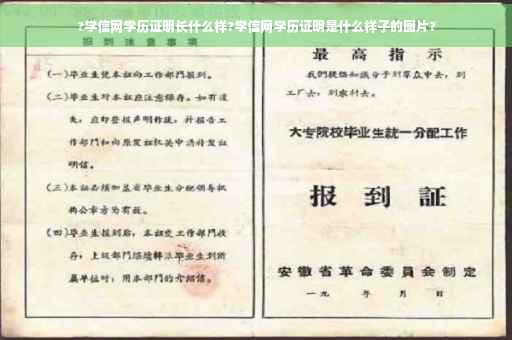 ?学信网学历证明长什么样?学信网学历证明是什么样子的图片?
报到注意事项
(一)毕业生凭本证向工作部门报到。
(二)毕业生对本证应注意保存。如有遗
失,应即登报声明作废,并报告工
作部门和向原发证机关申请补发证
明信。
(三)本证必须加盖省毕业生分配领导机
构公章方为有效。
(四)毕业生报到后,本证交工作部门收
存;上级部门 毕业生到所
属单位时,用本部门的介绍信。
最高指示
我们提倡知识分子到群众中去,到
工厂去,到农村去。
大专院校毕业生统一分配工作
报到証
安徽省革命委員会制定
一九 年 月 日